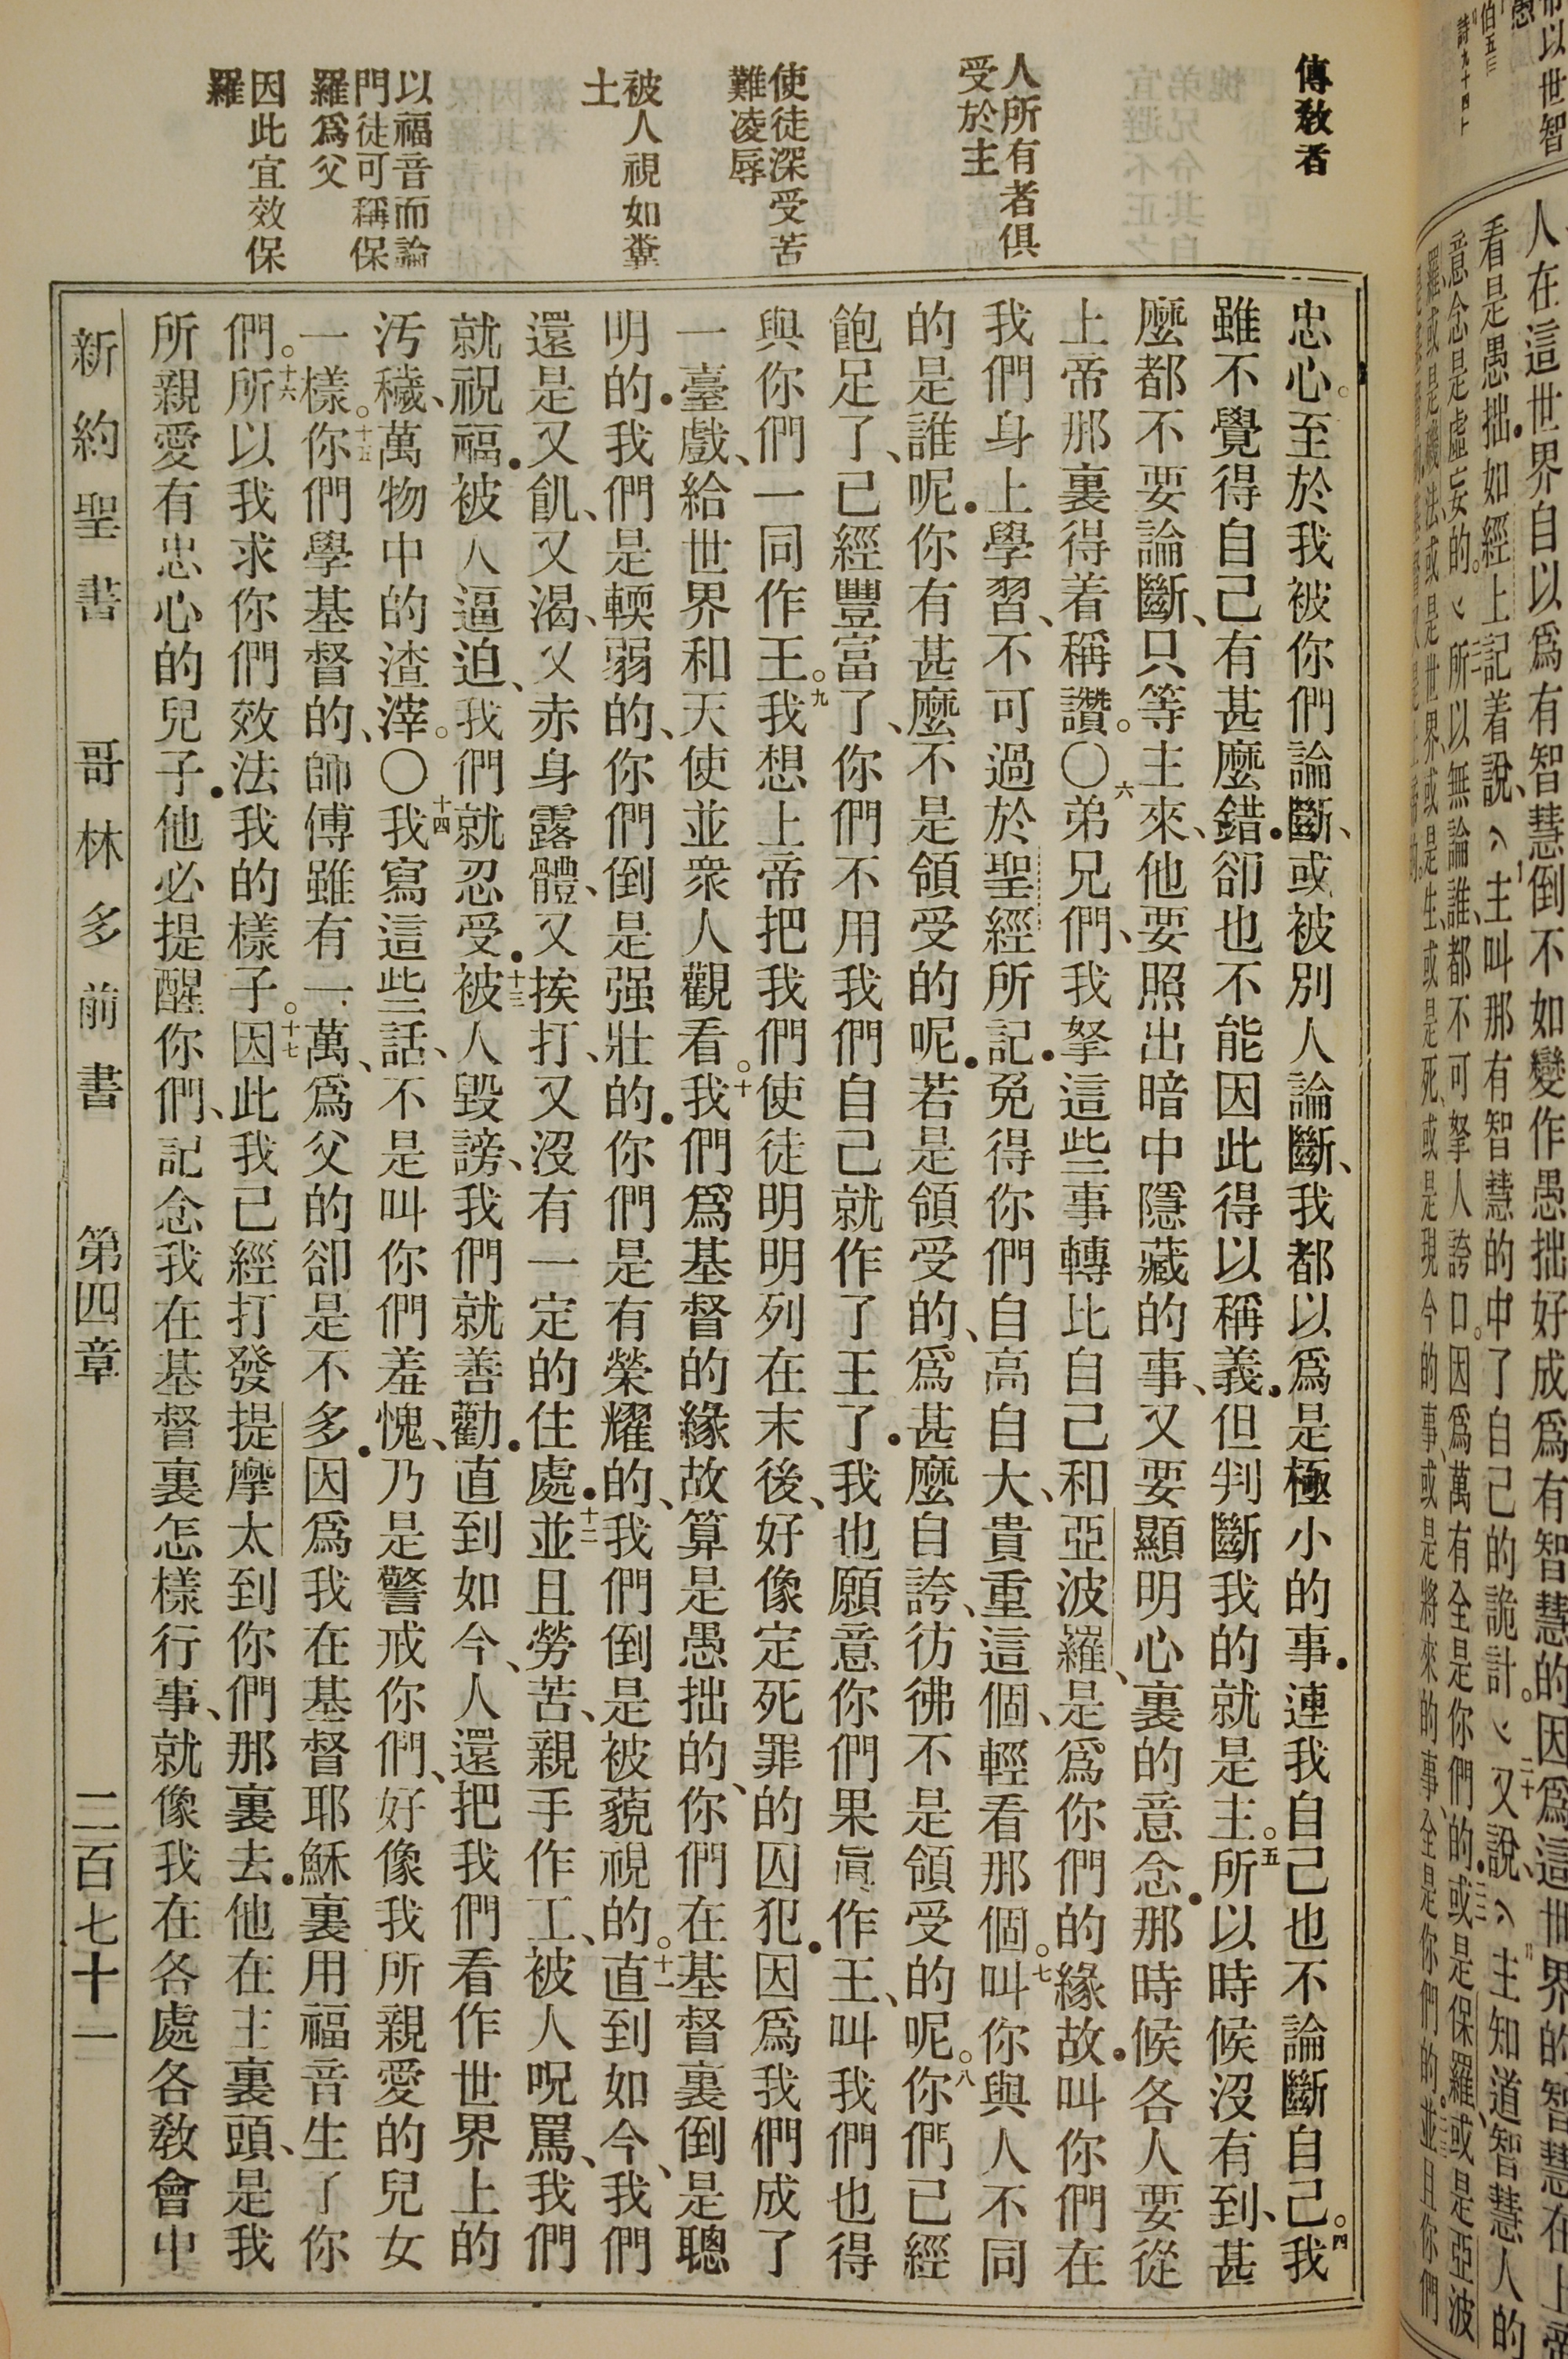 人在這世界自以爲有智慧倒不如變作愚拙好成爲有智慧的因爲這世界的智慧在上帝
看是愚拙．如經上記着說、主叫那有智慧的中了自己的詭計。二十又說、主知道智慧人的
意念是虛妄的。所以無論誰、都不可拏人誇口。因爲萬有全是你們的．或是保羅、或是亞波
羅、或是磯法、或是世界、或是生、或是死、或是現今的事、或是將來的事、全是你們的．並且你們
傳敎者
人所有者俱
受於主
使徒深受苦
難凌辱
被人視如糞
土
以福音而論
門徒可稱保
羅爲父
因此宜效保
羅
忠心。至於我被你們論斷、或被別人論斷、我都以爲是極小的事．連我自己也不論斷自己。四我
雖不覺得自己有甚麼錯．卻也不能因此得以稱義．但判斷我的就是主。五所以時候沒有到、甚
麼都不要論斷、只等主來、他要照出暗中隱藏的事、又要顯明心裏的意念．那時候各人要從
上帝那裏得着稱讚。〇六弟兄們、我拏這些事轉比自己和亞波羅、是爲你們的緣故．叫你們在
我們身上學習、不可過於聖經所記．免得你們自高自大、貴重這個、輕看那個。七叫你與人不同
的是誰呢．你有甚麼不是領受的呢．若是領受的、爲甚麼自誇、彷彿不是領受的呢。八你們已經
飽足了、已經豐富了、你們不用我們自己就作了王了．我也願意你們果眞作王、叫我們也得
與你們一同作王。九我想上帝把我們使徒明明列在末後、好像定死罪的囚犯．因爲我們成了
一臺戲、給世界和天使並衆人觀看。十我們爲基督的緣故算是愚拙的、你們在基督裏倒是聰
明的．我們是輭弱的、你們倒是强壯的．你們是有榮耀的、我們倒是被藐視的。十一直到如今、我們
還是又飢、又渴、又赤身露體、又挨打、又沒有一定的住處．十二並且勞苦、親手作工、被人呪罵、我們
就祝福．被人逼迫、我們就忍受．十三被人毀謗、我們就善勸．直到如今、人還把我們看作世界上的
汚穢、萬物中的渣滓。〇十四我寫這些話、不是叫你們羞愧、乃是警戒你們、好像我所親愛的兒女
一樣。十五你們學基督的、師傅雖有一萬、爲父的卻是不多．因爲我在基督耶穌裏用福音生了你
們。十六所以我求你們效法我的樣子。十七因此我已經打發提摩太到你們那裏去．他在主裏頭、是我
所親愛有忠心的兒子．他必提醒你們、記念我在基督裏怎樣行事、就像我在各處各敎會中
新約聖書 哥林多前書 第四章 二百七十一